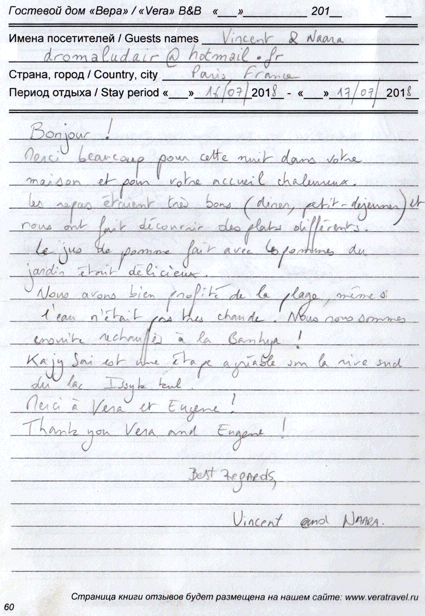 Гостевой дом «Вера» / «Vera» B&B «___»__________ 201__ ____
Имена посетителей / Guests names Vincent & Naara
dromaludair@hotmail.fr
Страна, город / Country, city Paris, France
Период отдыха / Stay period «__» 16/07/2018 - «__» 17/07/2018
Bonjour !
Merci beaucoup pour cette nuit dans votre
maison et pour votre accueil chaleureux.
Les repas étaient très bons (diner, petit-dejeuner) et
nous ont fait découvrir des plats différents.
Le jus de pomme fait avec les pommes du
jardin était delicieux.
Nous avons bien profité de la plage, même si
l'eau n'était pas très chaude. Nous nous sommes
ensuite rechauffés à la Banhya !
Kajy Sai est une étape agréable sur la rive sud
du lac Issyk kul.
Merci à Vera et Eugene !
Thank you Vera and Eugene !
Best Regards,
Vincent and NAARA.
Страница книги отзывов будет размещена на нашем сайте: www.veratravel.ru
60